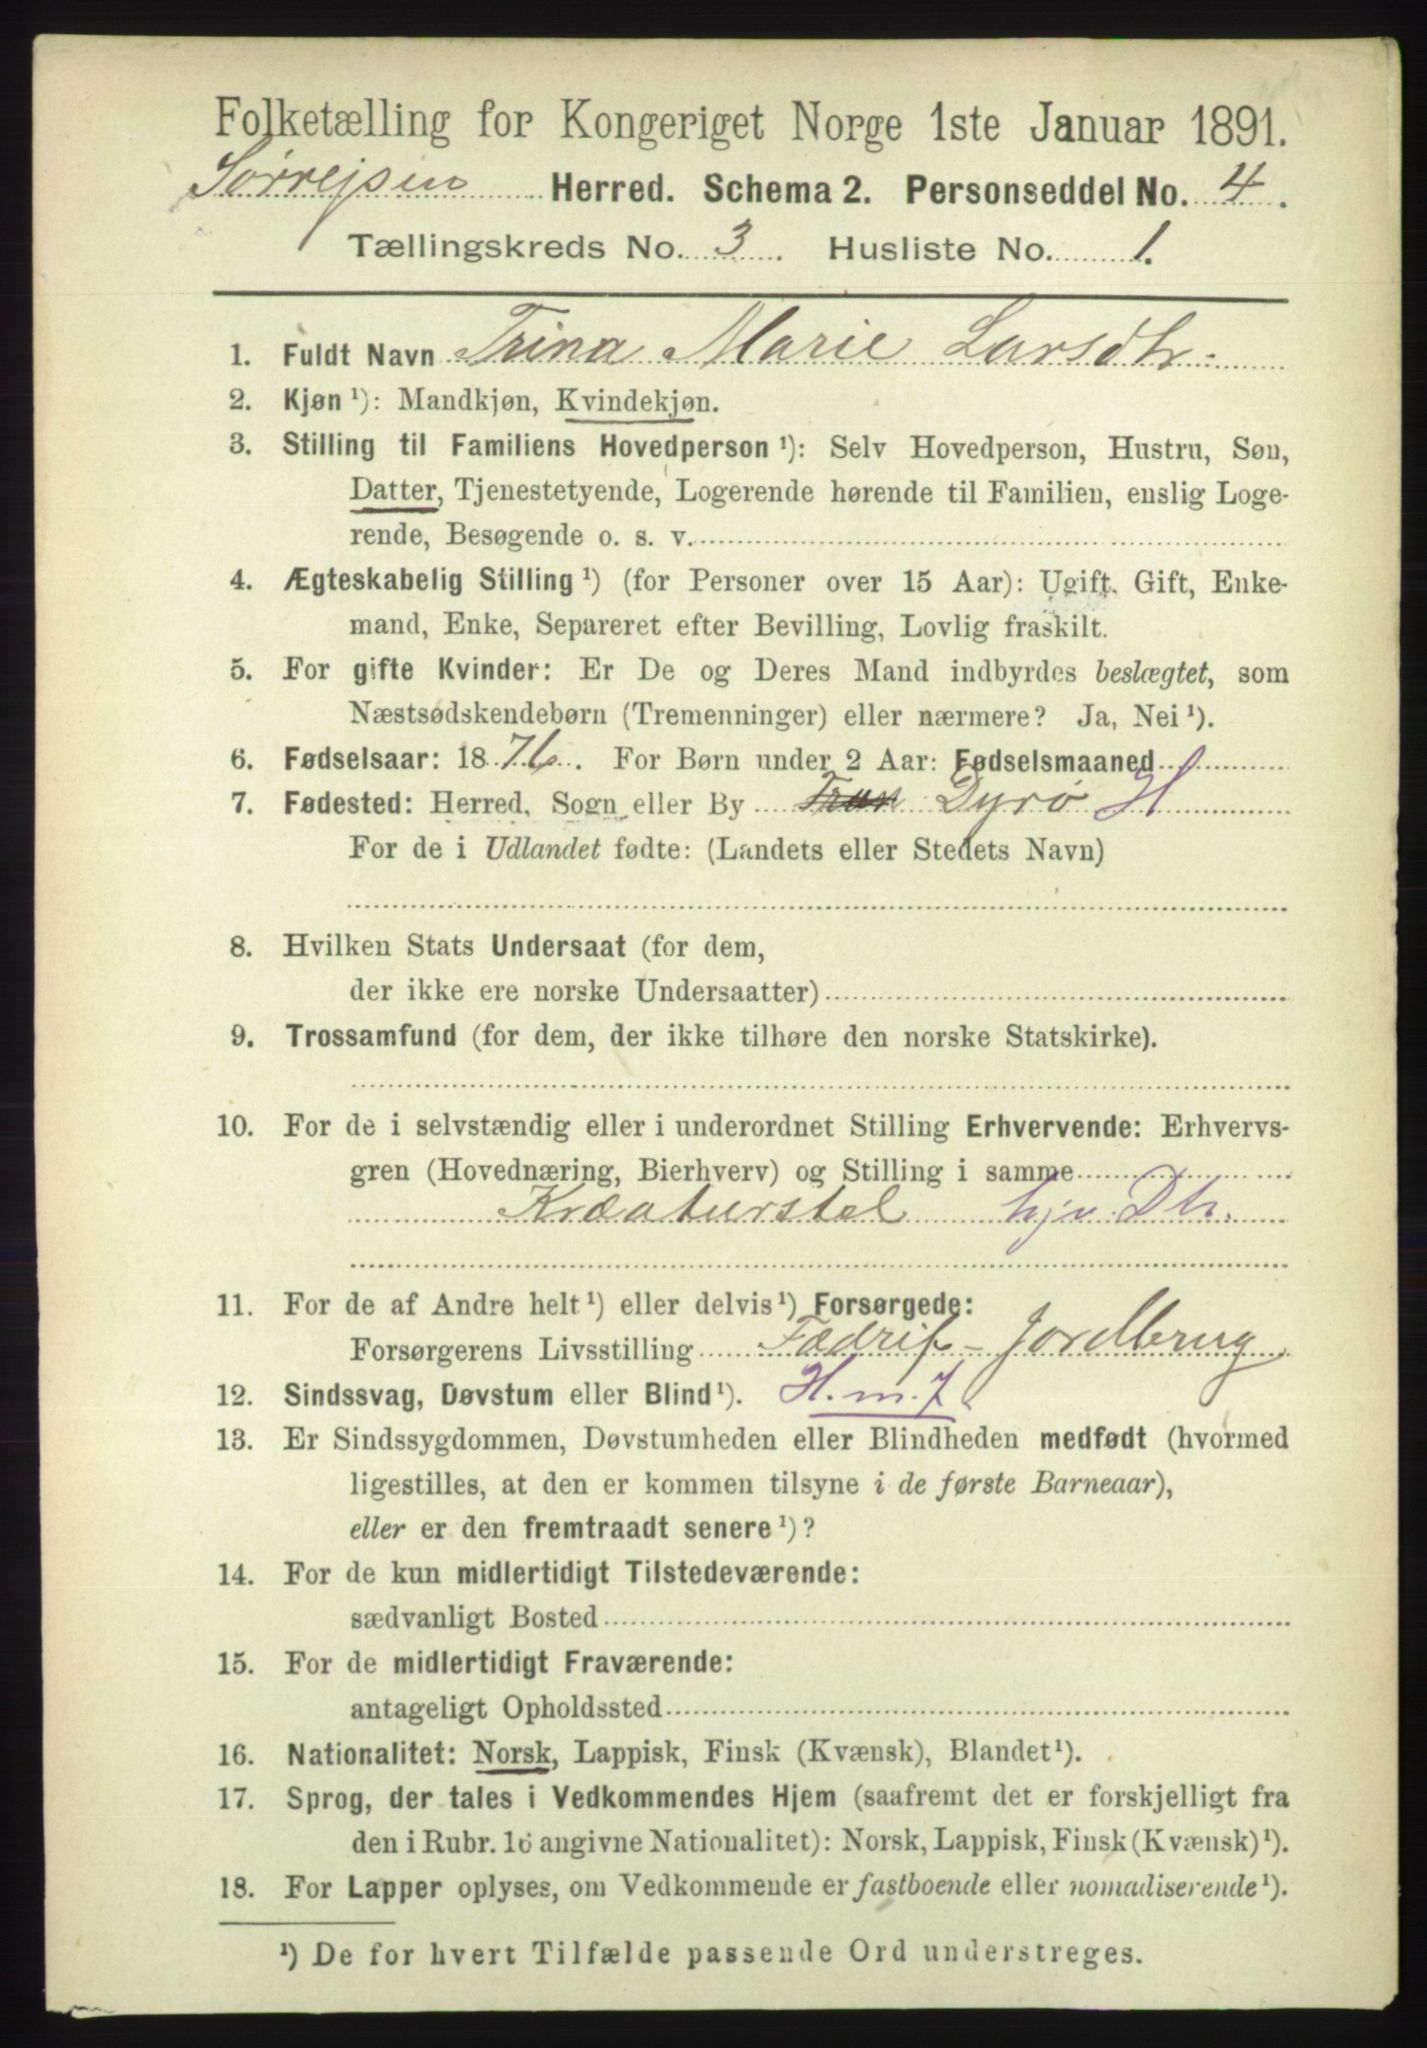 Folketælling for Kongeriget Norge 1ste Januar 1891.
Sørrejsen Herred. Schema 2. Personseddel No. 4.
Tællingskreds No. 3. Husliste No. 1.
1. Fuldt Navn Trina Marie Larsdtr.
2. Kjøn ¹): Mandkjøn, Kvindekjøn.
3. Stilling til Familiens Hovedperson ¹): Selv Hovedperson, Hustru, Søn,
Datter, Tjenestetyende, Logerende hørende til Familien, enslig Loge-
rende, Besøgende o. s. v.
4. Ægteskabelig Stilling ¹) (for Personer over 15 Aar): Ugift, Gift, Enke-
mand, Enke, Separeret efter Bevilling, Lovlig fraskilt.
5. For gifte Kvinder: Er De og Deres Mand indbyrdes beslægtet, som
Næstsødskendebørn (Tremenninger) eller nærmere? Ja, Nei ¹).
6. Fødselsaar: 1876. For Børn under 2 Aar: Fødselsmaaned
7. Fødested: Herred, Sogn eller By Tran Dyrø H
For de i Udlandet fødte: (Landets eller Stedets Navn)
8. Hvilken Stats Undersaat (for dem,
der ikke ere norske Undersaatter)
9. Trossamfund (for dem, der ikke tilhøre den norske Statskirke).
10. For de i selvstændig eller i underordnet Stilling Erhvervende: Erhvervs-
gren (Hovednæring, Bierhverv) og Stilling i samme
Kreaturstel hjv. Dtr.
11. For de af Andre helt ¹) eller delvis ¹) Forsørgede:
Forsørgerens Livsstilling Fædrift - Jordbrug
12. Sindssvag, Døvstum eller Blind ¹). H. m. 7
13. Er Sindssygdommen, Døvstumheden eller Blindheden medfødt (hvormed
ligestilles, at den er kommen tilsyne i de første Barneaar),
eller er den fremtraadt senere ¹)?
14. For de kun midlertidigt Tilstedeværende:
sædvanligt Bosted
15. For de midlertidigt Fraværende:
antageligt Opholdssted
16. Nationalitet: Norsk, Lappisk, Finsk (Kvænsk), Blandet ¹).
17. Sprog, der tales i Vedkommendes Hjem (saafremt det er forskjelligt fra
den i Rubr. 16 angivne Nationalitet): Norsk, Lappisk, Finsk (Kvænsk) ¹).
18. For Lapper oplyses, om Vedkommende er fastboende eller nomadiserende ¹).
¹) De for hvert Tilfælde passende Ord understreges.